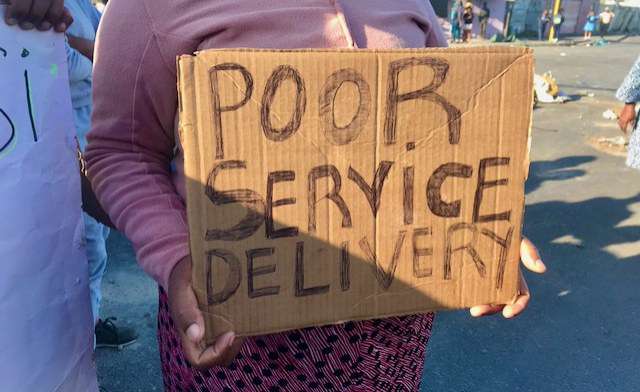 POOR
SERViCE
DELIVERY